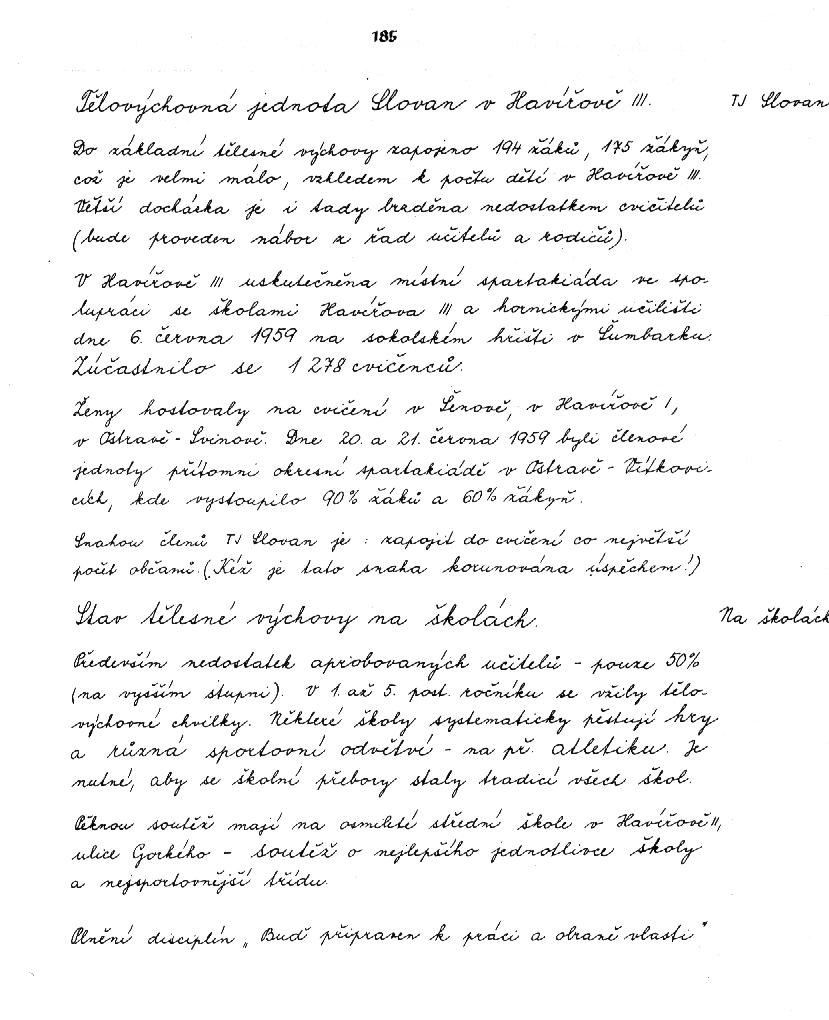 185
Tělovýchovná jednota Slovan v Havířově III.
TJ Slovan
Do základní tělesné výchovy zapojeno 194 žáků, 175 žákyň,
což je velmi málo, vzhledem k počtu dětí v Havířově III.
Větší docházka je i tady brzděna nedostatkem cvičitelů
(bude proveden nábor z řad učitelů a rodičů).
V Havířově III uskutečněna místní spartakiáda ve spo-
lupráci se školami Havířova III a hornickými učilišti
dne 6. června 1959 na sokolském hřišti v Šumbarku.
Zúčastnilo se 1 278 cvičenců.
Ženy hostovaly na cvičení v Šenově, v Havířově I,
v Ostravě - Svinově. Dne 20. a 21. června 1959 byli členové
jednoty přítomni okresní spartakiádě v Ostravě - Vítkovi-
cích, kde vystoupilo 90% žáků a 60% žákyň.
Snahou členů TJ Slovan je : zapojit do cvičení co největší
počet občanů. (Kéž je tato snaha korunována úspěchem!)
Stav tělesné výchovy na školách.
Na školách
Především nedostatek aprobovaných učitelů - pouze 50%
(na vyšším stupni). V 1. až 5. post. ročníku se vžily tělo-
výchovné chvilky. Některé školy systematicky pěstují hry
a různá sportovní odvětví - na př. atletiku. Je
nutné, aby se školní přebory staly tradicí všech škol.
Pěknou soutěž mají na osmileté střední škole v Havířově II,
ulice Gorkého - soutěž o nejlepšího jednotlivce školy
a nejsportovnější třídu.
Plnění disciplín „Buď připraven k práci a obraně vlasti"